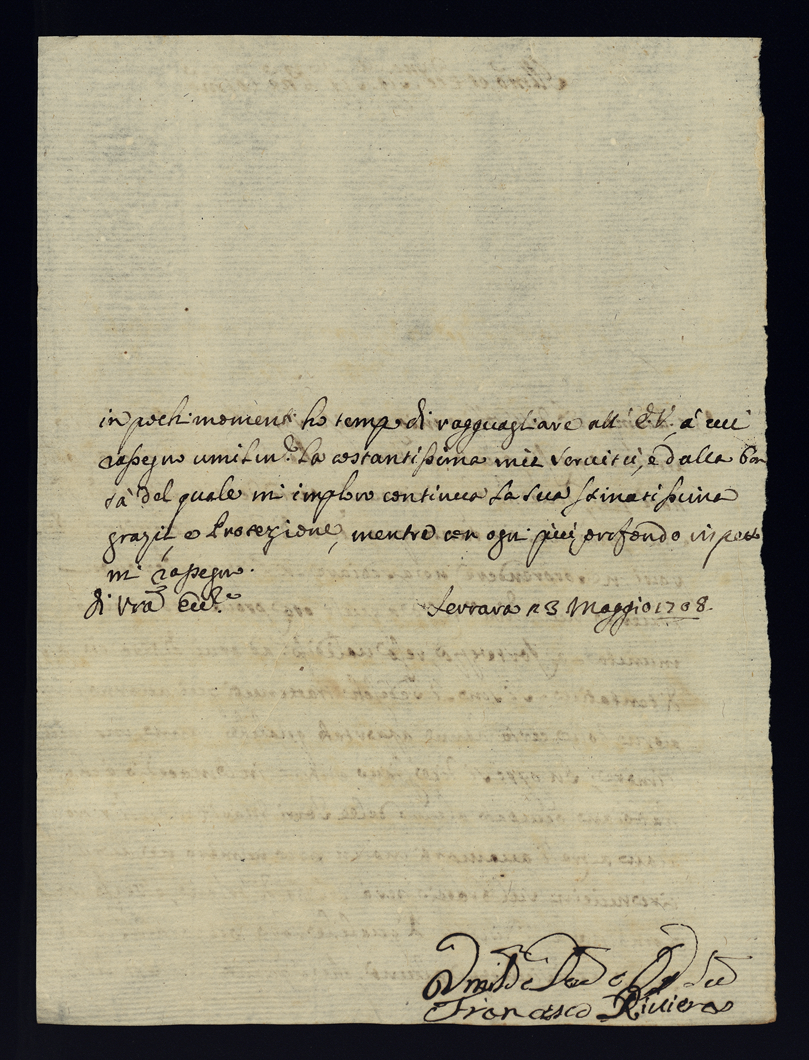 in pochi momenti ho tempo di ragguagliare all' E.V. à cui
rassegno umilm.e la costantissima mia servitù, e dalla bon
tà del quale mi imploro continua la sua stimatissima
grazia e Protezione, mentre con ogni più profondo rispetto
mi rassegno.
di Vra Ecc.a Ferrara 23 Maggio 1708.
Umil.e Dev.e e
Francesco Riviera